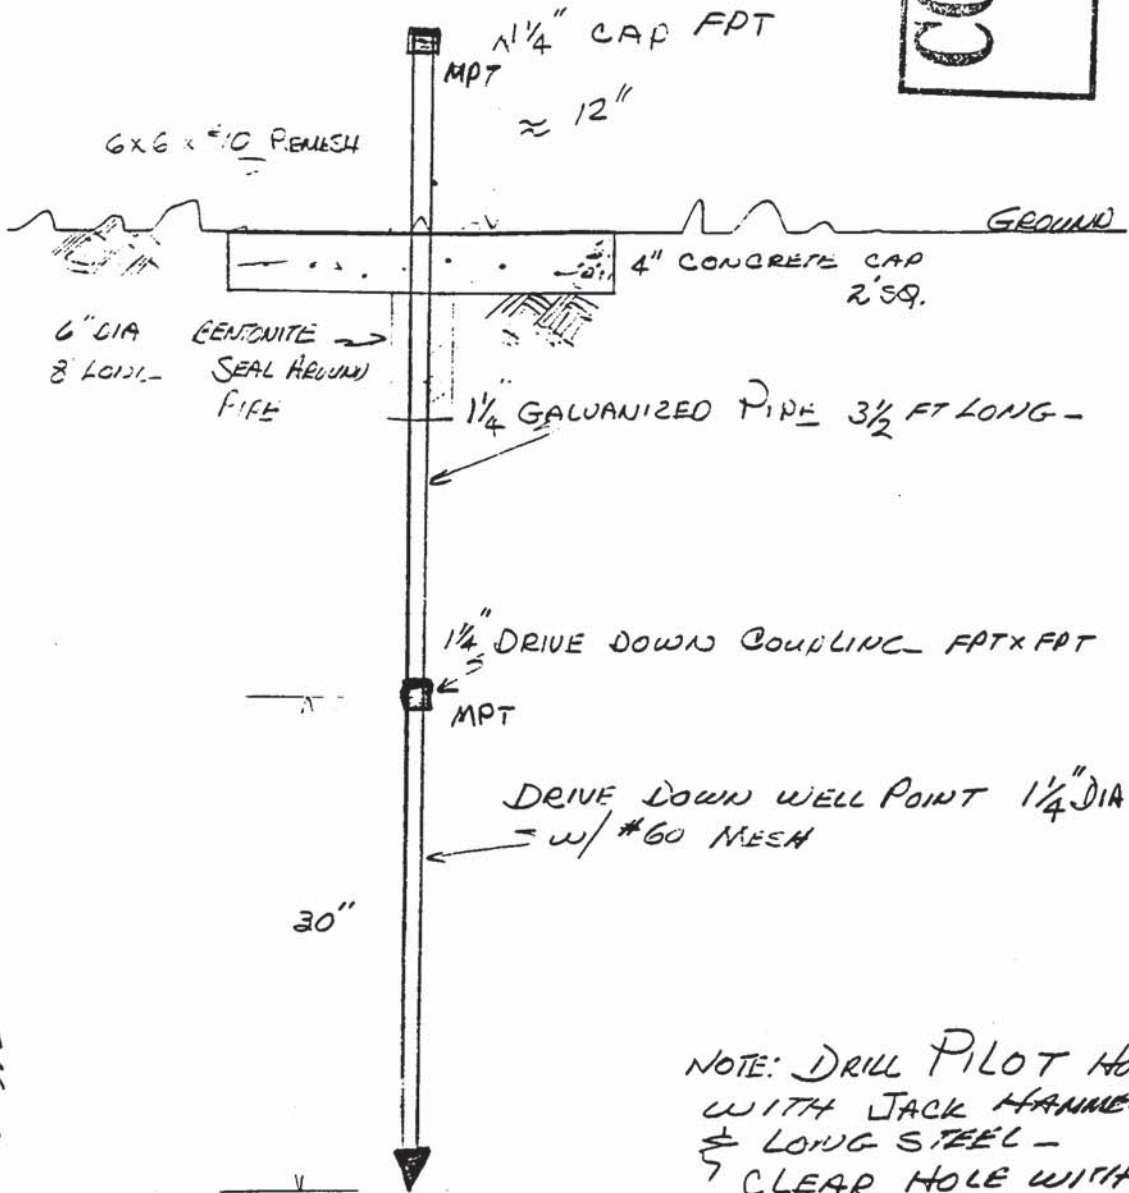 1 1/4" CAP FPT
MPT
≈ 12"
6x6 x #10 REMESH
GROUND
4" CONCRETE CAP
2' SQ.
6" DIA
8" LONG
BENTONITE
SEAL AROUND
PIPE
1 1/4" GALVANIZED PIPE 3 1/2 FT LONG -
1 1/4" DRIVE DOWN COUPLING - FPT x FPT
MPT
DRIVE DOWN WELL POINT 1 1/4" DIA
w/ #60 MESH
30"
NOTE: DRILL PILOT HO
WITH JACK HAMME
& LONG STEEL -
CLEAR HOLE WITH